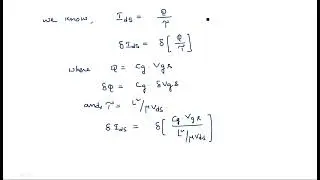 we know, Ids = Q/τ
δ Ids = δ [ Q/τ ]
where Q = Cg Vgs
δQ = Cg . δVgs
and, τ = L²/μVds
δ Ids = δ [ Cg Vgs / L²/μVds ]